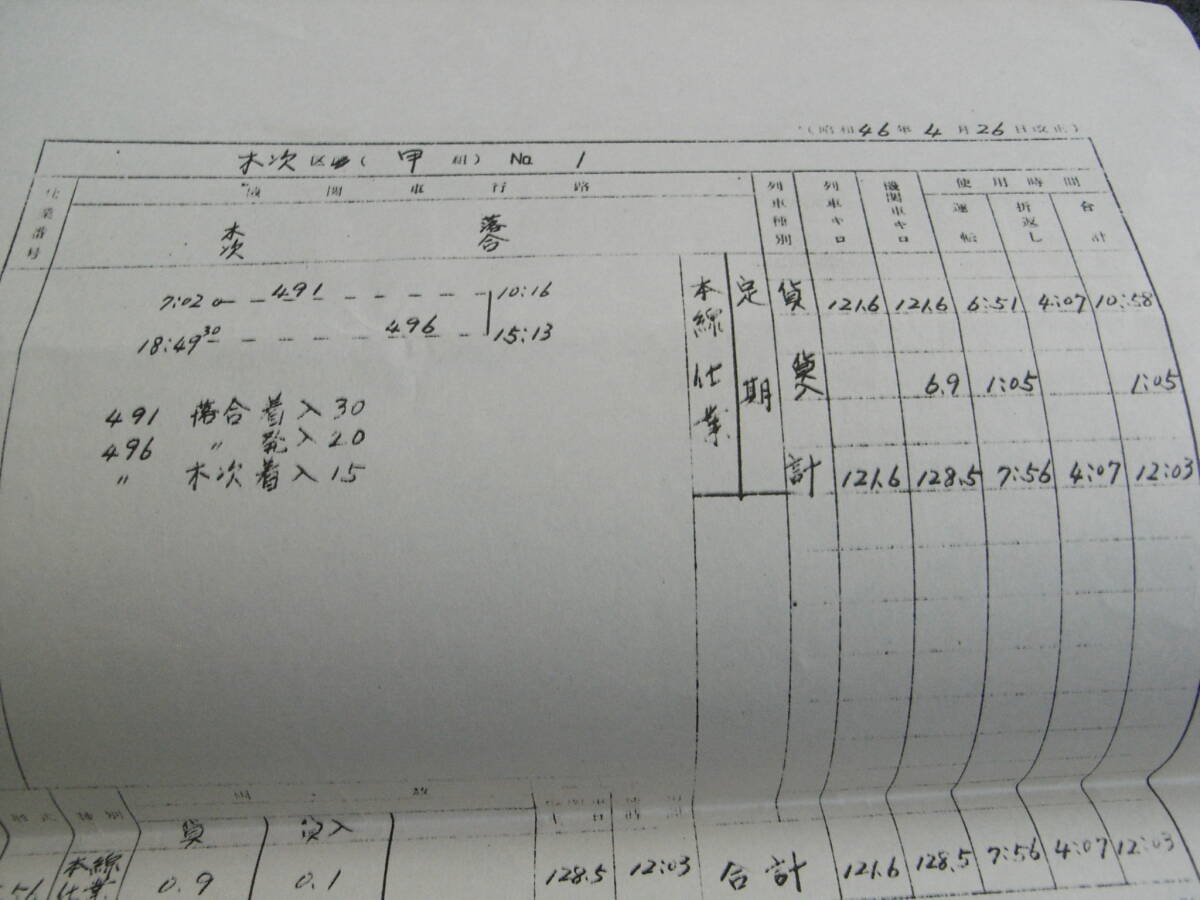 (昭和46年4月26日改正)
木次区(甲組) No. 1
仕業番号 機関車行路 列車種別 列車キロ 機関車キロ 使用時間
運転 折返し 合計
木次 落合
7:02 491 10:16
18:49 30 496 15:13
本線仕業 定期
貨 121.6 121.6 6:51 4:07 10:58
貨入 6.9 1:05 1:05
計 121.6 128.5 7:56 4:07 12:03
491 落合着入30
496 〃 発入20
〃 木次着入15
種別
貨 貨入
本線仕業 0.9 0.1 128.5 12:03 合計 121.6 128.5 7:56 4:07 12:03